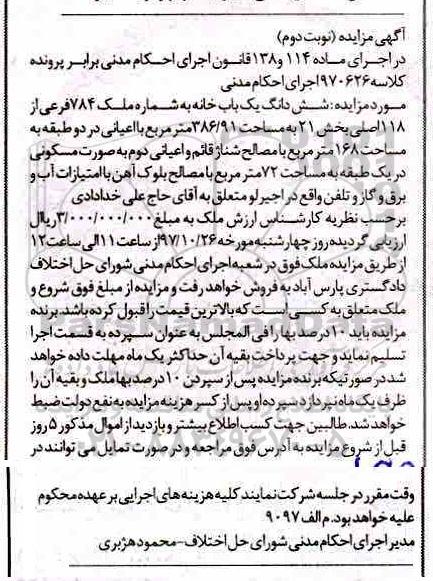 آگهی مزایده (نوبت دوم)
در اجرای ماده ۱۱۴ و۱۳۸ قانون اجرای احکام مدنی برابر پرونده
کلاسه ۹۷۰۶۲۶ اجرای احکام مدنی
مورد مزایده : شش دانگ یک باب خانه به شماره ملک ۷۸۴ فرعی از
۱۱۸ اصلی بخش ۲۱ به مساحت ۳۸۶/۹۱ متر مربع با اعیانی در دو طبقه به
مساحت ۱۶۸ متر مربع با مصالح شناژ قائم و اعیانی دوم به صورت مسکونی
در یک طبقه به مساحت ۷۲ متر مربع با مصالح بلوک آهن با امتیازات آب و
برق و گاز و تلفن واقع در اجیرلو متعلق به آقای حاج علی خدادادی
بر حسب نظریه کارشناس ارزش ملک به مبلغ ۳/۰۰۰/۰۰۰/۰۰۰ ریال
ارزیابی گردیده روز چهارشنبه مورخه ۹۷/۱۰/۲۶ از ساعت ۱۱ الی ساعت ۱۲
از طریق مزایده ملک فوق در شعبه اجرای احکام مدنی شورای حل اختلاف
دادگستری پارس آباد به فروش خواهد رفت و مزایده از مبلغ فوق شروع و
ملک متعلق به کسی است که بالاترین قیمت را قبول کرده باشد. برنده
مزایده باید ۱۰ درصد بها را فی المجلس به عنوان سپرده به قسمت اجرا
تسلیم نماید و جهت پرداخت بقیه آن حداکثر یک ماه مهلت داده خواهد
شد در صورتیکه برنده مزایده پس از سپردن ۱۰ درصد بها ملک و بقیه آن را
ظرف یک ماه نپردازد سپرده او پس از کسر هزینه مزایده به نفع دولت ضبط
خواهد شد. طالبین جهت کسب اطلاع بیشتر و بازدید از اموال مذکور ۵ روز
قبل از شروع مزایده به آدرس فوق مراجعه و در صورت تمایل می توانند در
وقت مقرر در جلسه شرکت نمایند کلیه هزینه های اجرایی بر عهده محکوم
علیه خواهد بود. م الف ۹۰۹۷
مدیر اجرای احکام مدنی شورای حل اختلاف-محمود هژبری